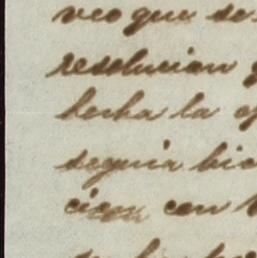 veo que se
resolucion
hecha la
seguia bie
cion con